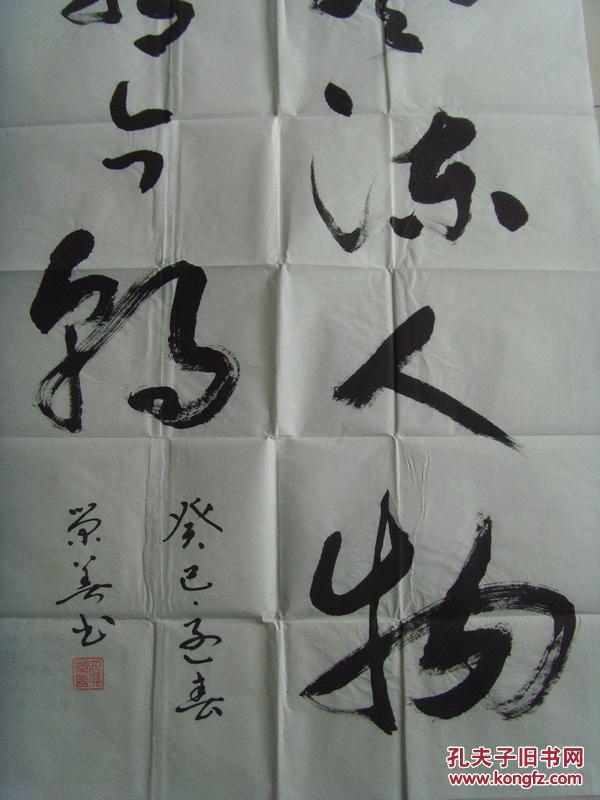 风流人物
看今朝
癸巳孟春
荣善书
孔夫子旧书网
www.kongfz.com